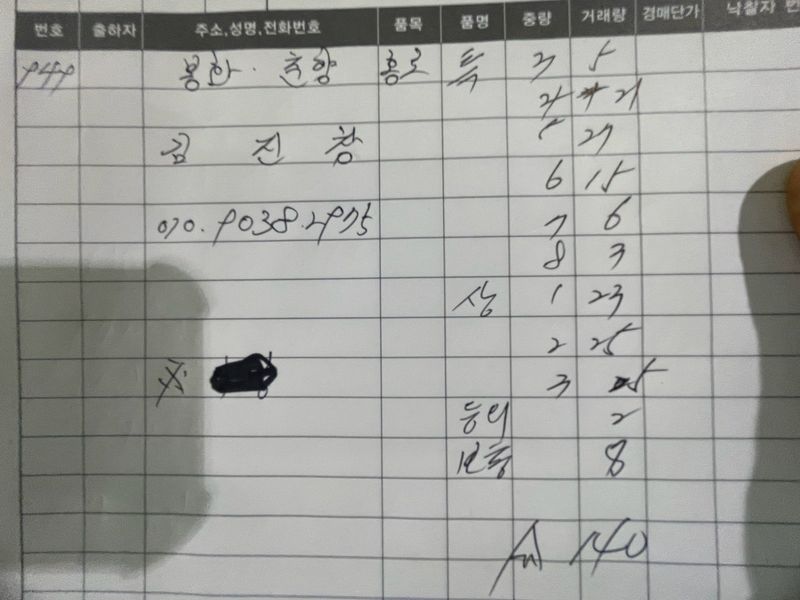 번호 출하자 주소,성명,전화번호 품목 품명 중량 거래량 경매단가 낙찰자
949 봉화 · 춘양 홍로 특 3 5
4 21
김 진 창 5 27
6 15
010.9038.2975 7 6
8 3
상 1 23
2 25
3 5
등외 2
보통 8
계 140